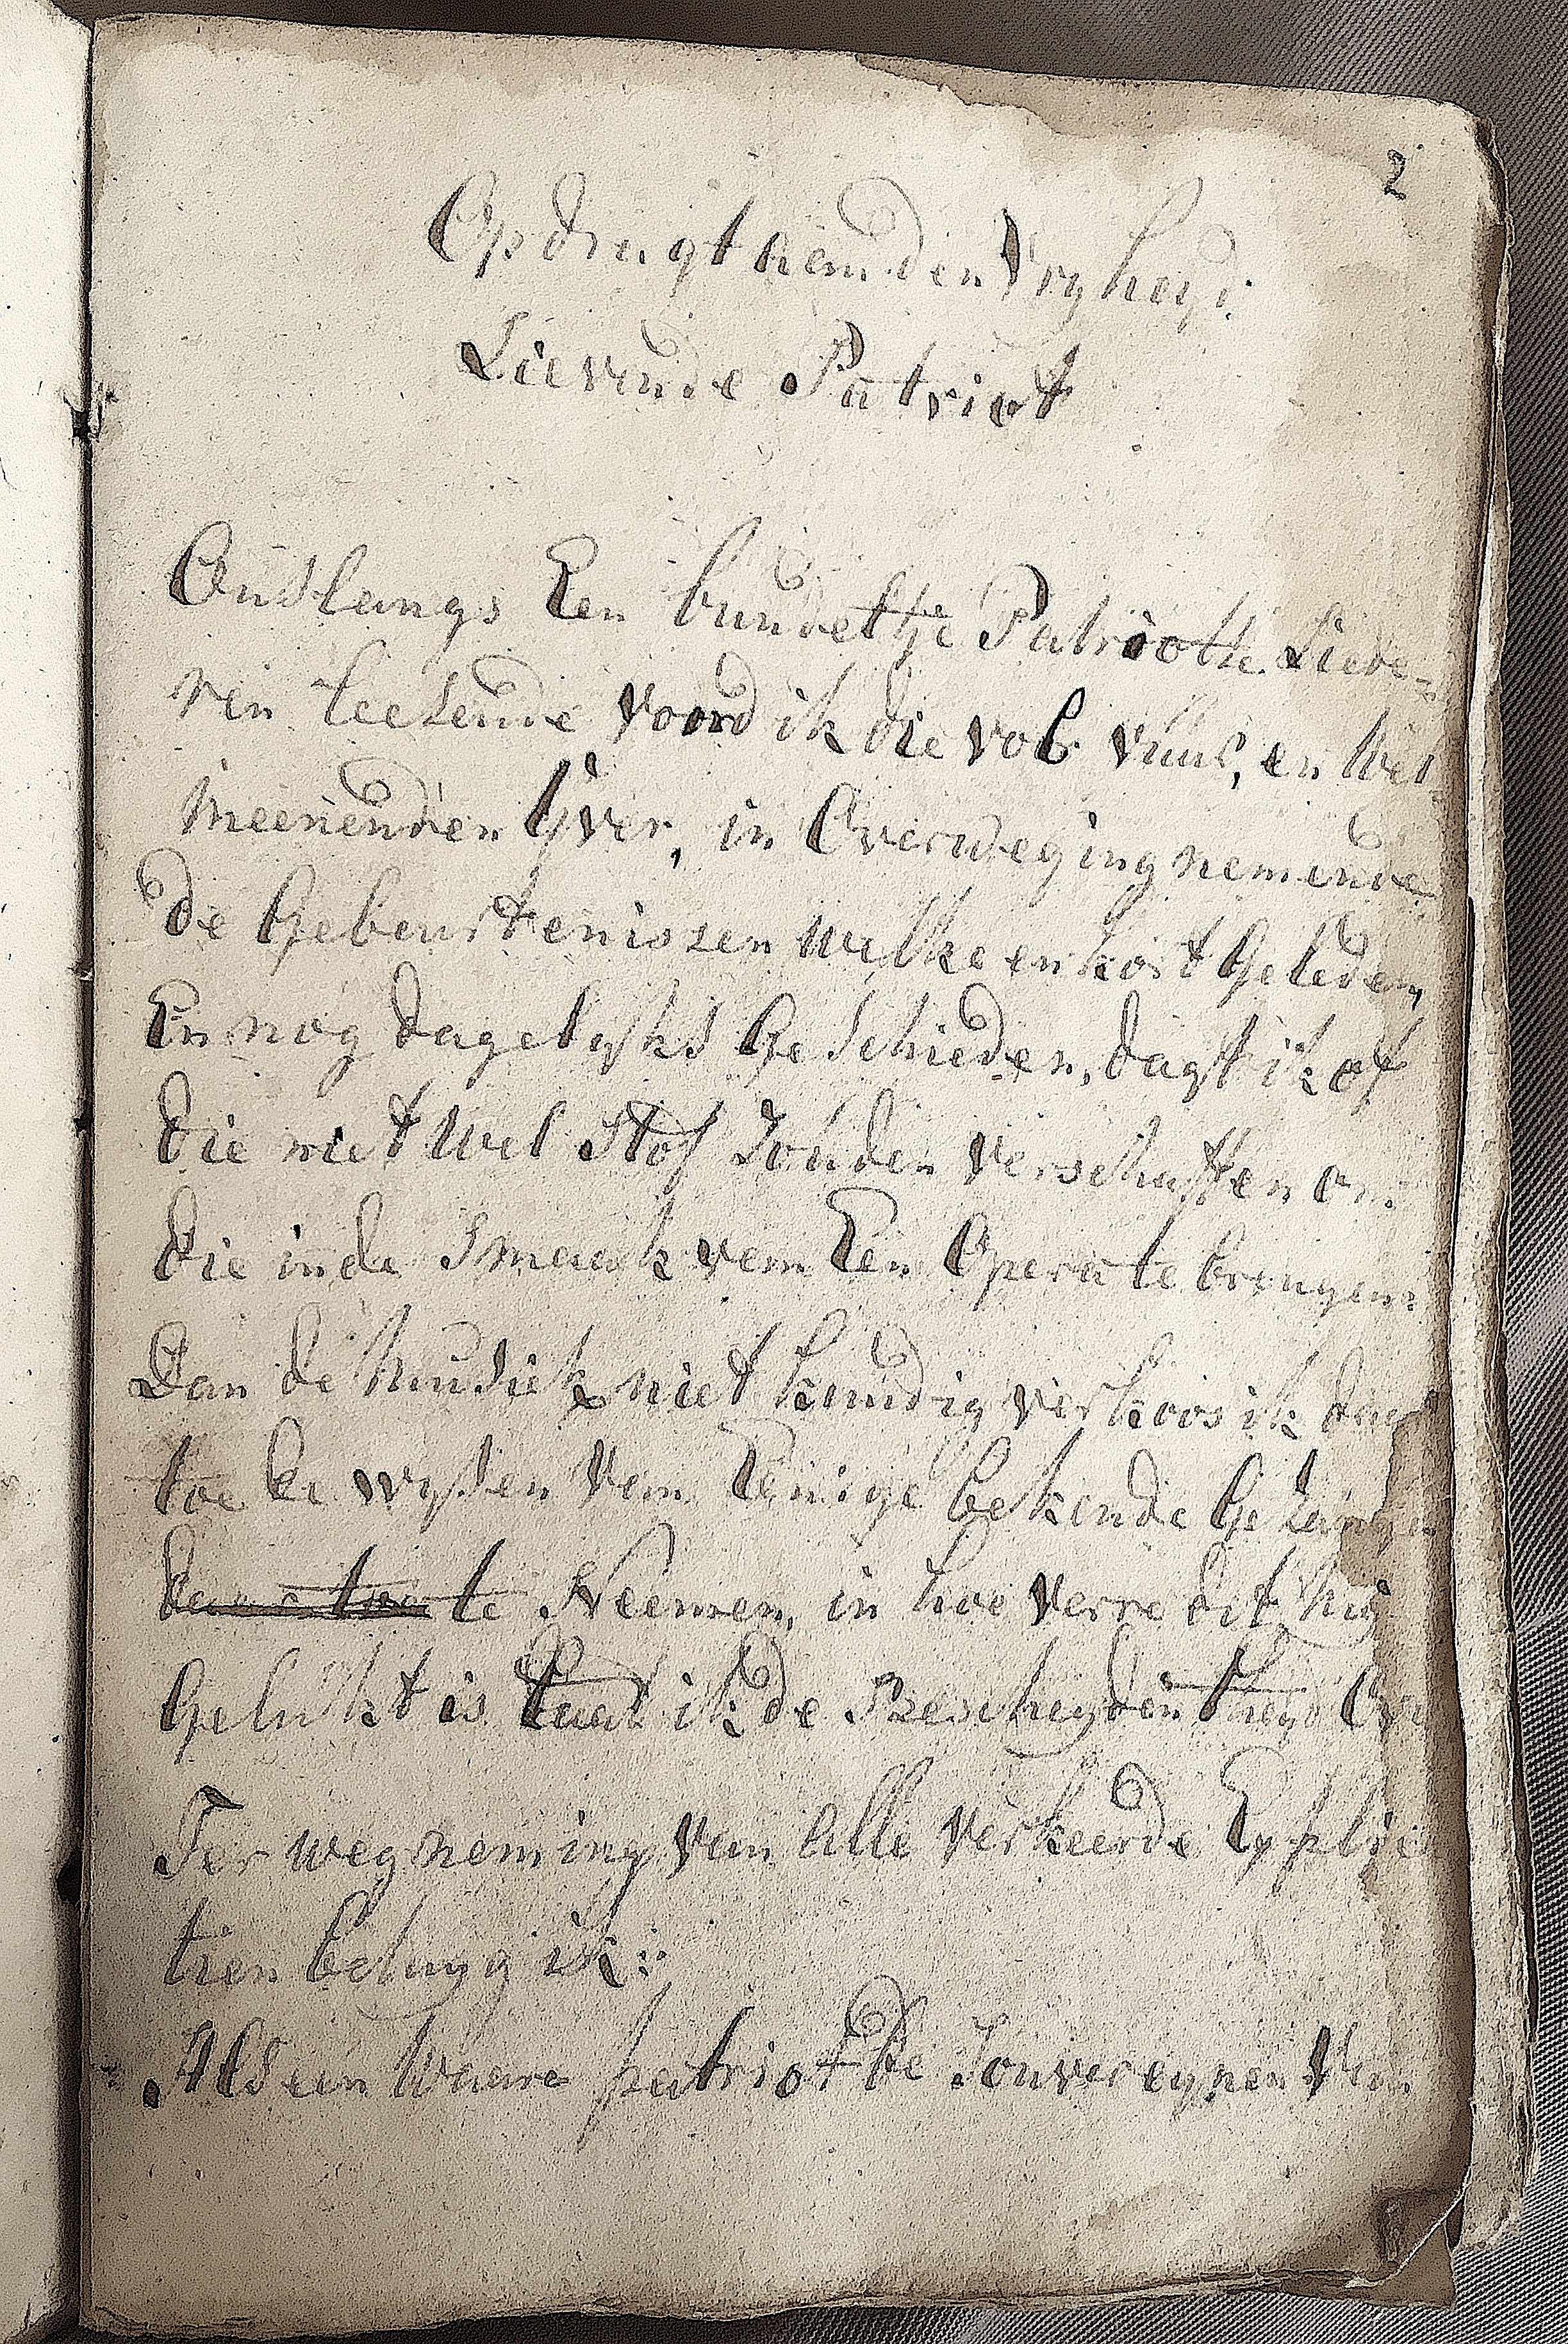 2
Opdragt aan den Vryheyd:
Lievende Patriot
Onslangs Een bundeltje Patriotse Liede=
ren leesende voord ik die vol vuur, en Wel
meenenden Yver, in Overweging nemende
de Gebeurtenissen welke en kort Geleden,
En nog dagelyks Geschieden, dagt ik of
die niet wel Stof Souden verschaffen om
die in de Smaak van Een Opera te brengen:
Dan de Musiek niet kundig verkoos ik daar
toe de wysen van Eenige bekende Gezangen
te Neemen, in hoe verre dit my
Gelukt is laat ik de Bescheydentheyd
Ter wegneming van alle verkeerde Explica
tien betuyg ik:
Als een Waare patriot De Souvereynen Van